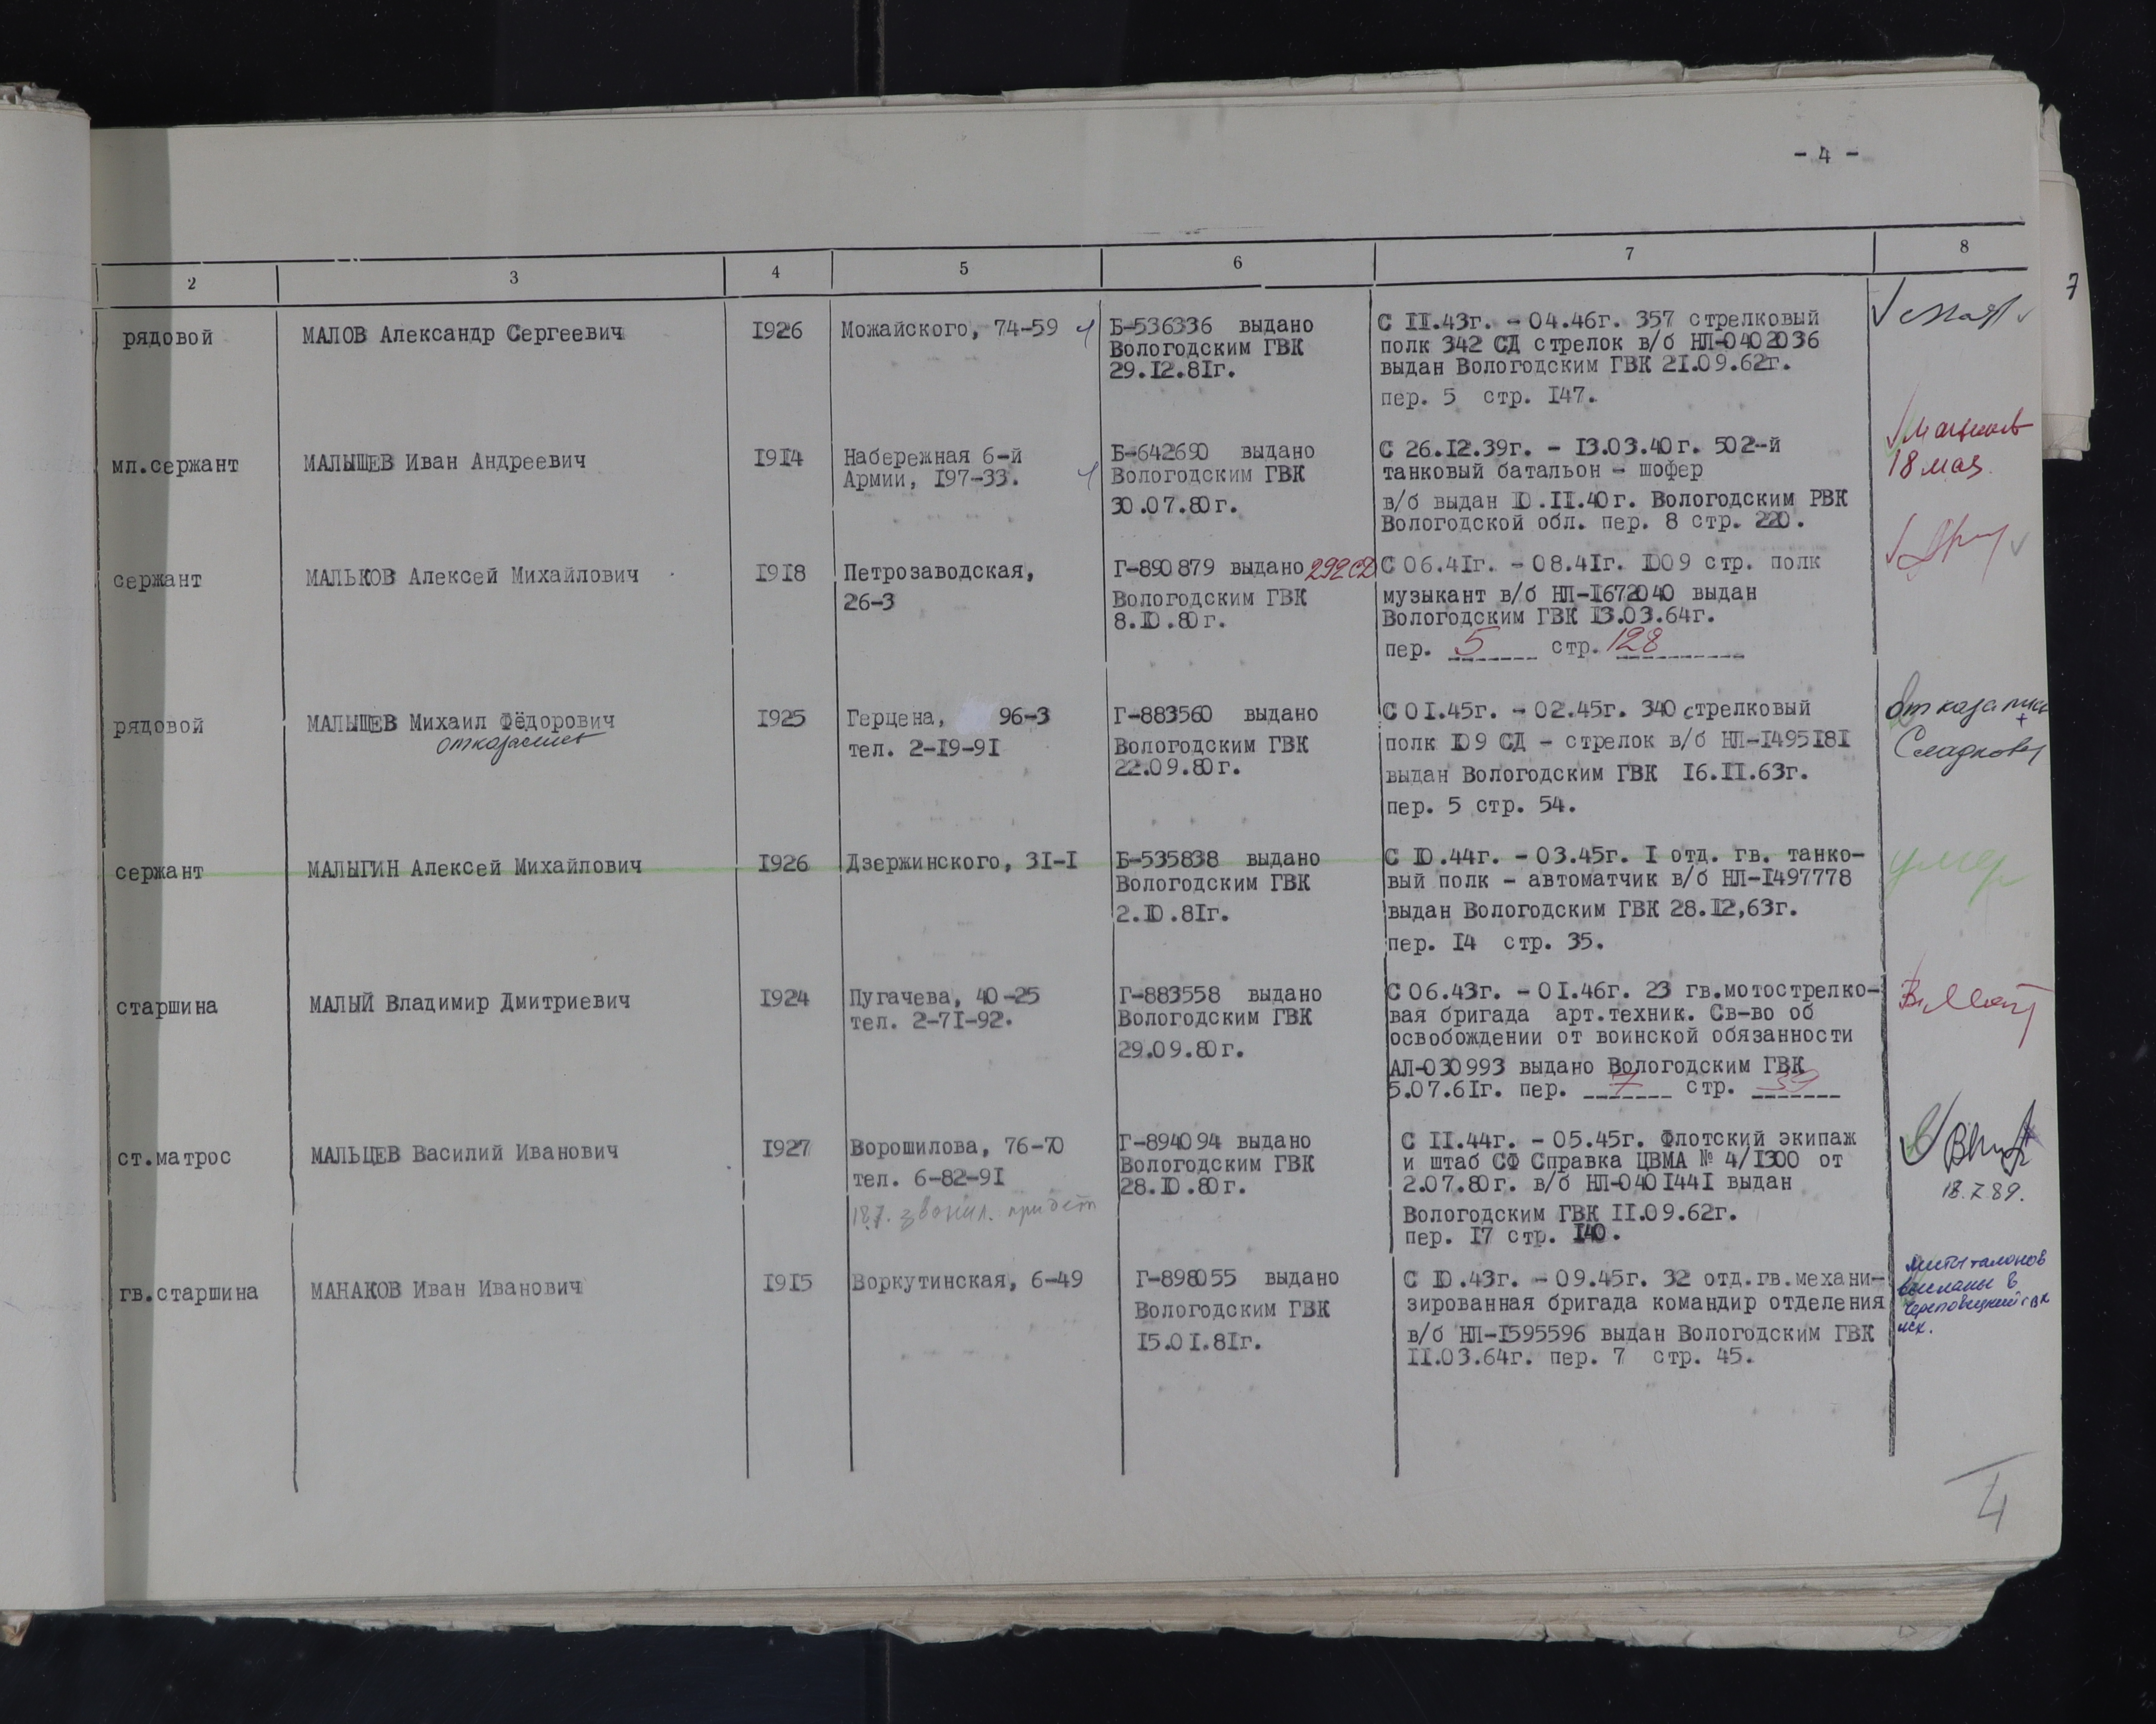 - 4 -
7
2 3 4 5 6 7 8
рядовой
МАЛОВ Александр Сергеевич
1926
Можайского, 74-59
Б-536336 выдано
Вологодским ГВК
29.12.81г.
С 11.43г. - 04.46г. 357 стрелковый
полк 342 СД стрелок в/б НЛ-0402036
выдан Вологодским ГВК 21.09.62г.
пер. 5 стр. 147.
мл.сержант
МАЛЫШЕВ Иван Андреевич
1914
Набережная 6-й
Армии, 197-33.
Б-642690 выдано
Вологодским ГВК
30.07.80г.
С 26.12.39г. - 13.03.40г. 502-й
танковый батальон - шофер
в/б выдан 10.11.40г. Вологодским РВК
Вологодской обл. пер. 8 стр. 220.
18 мая.
сержант
МАЛЬКОВ Алексей Михайлович
1918
Петрозаводская,
26-3
Г-890879 выдано 292 СД
Вологодским ГВК
8.10.80г.
С 06.41г. - 08.41г. 1009 стр. полк
музыкант в/б НЛ-1672040 выдан
Вологодским ГВК 13.03.64г.
пер. 5 стр. 128
рядовой
МАЛЫШЕВ Михаил Фёдорович
отказались
1925
Герцена, 96-3
тел. 2-19-91
Г-883560 выдано
Вологодским ГВК
22.09.80г.
С 01.45г. - 02.45г. 340 стрелковый
полк 109 СД - стрелок в/б НЛ-1495181
выдан Вологодским ГВК 16.11.63г.
пер. 5 стр. 54.
отказались
+
сержант
МАЛЫГИН Алексей Михайлович
1926
Дзержинского, 31-1
Б-535838 выдано
Вологодским ГВК
2.10.81г.
С 10.44г. - 03.45г. 1 отд. гв. танко-
вый полк - автоматчик в/б НЛ-1497778
выдан Вологодским ГВК 28.12,63г.
пер. 14 стр. 35.
умер
старшина
МАЛЫЙ Владимир Дмитриевич
1924
Пугачева, 40-25
тел. 2-71-92.
Г-883558 выдано
Вологодским ГВК
29.09.80г.
С 06.43г. - 01.46г. 23 гв.мотострелко-
вая бригада арт.техник. Св-во об
освобождении от воинской обязанности
АЛ-030993 выдано Вологодским ГВК
5.07.61г. пер. 7 стр. 39
ст.матрос
МАЛЬЦЕВ Василий Иванович
1927
Ворошилова, 76-70
тел. 6-82-91
18.7. звонил. придет
Г-894094 выдано
Вологодским ГВК
28.10.80г.
С 11.44г. - 05.45г. Флотский экипаж
и штаб СФ Справка ЦВМА № 4/1300 от
2.07.80г. в/б НЛ-0401441 выдан
Вологодским ГВК 11.09.62г.
пер. 17 стр. 140.
18.7.89.
гв.старшина
МАНАКОВ Иван Иванович
1915
Воркутинская, 6-49
Г-898055 выдано
Вологодским ГВК
15.01.81г.
С 10.43г. - 09.45г. 32 отд.гв.механи-
зированная бригада командир отделения
в/б НЛ-1595596 выдан Вологодским ГВК
11.03.64г. пер. 7 стр. 45.
листы талонов
высланы в
Череповецкий ГВК
исх.
4